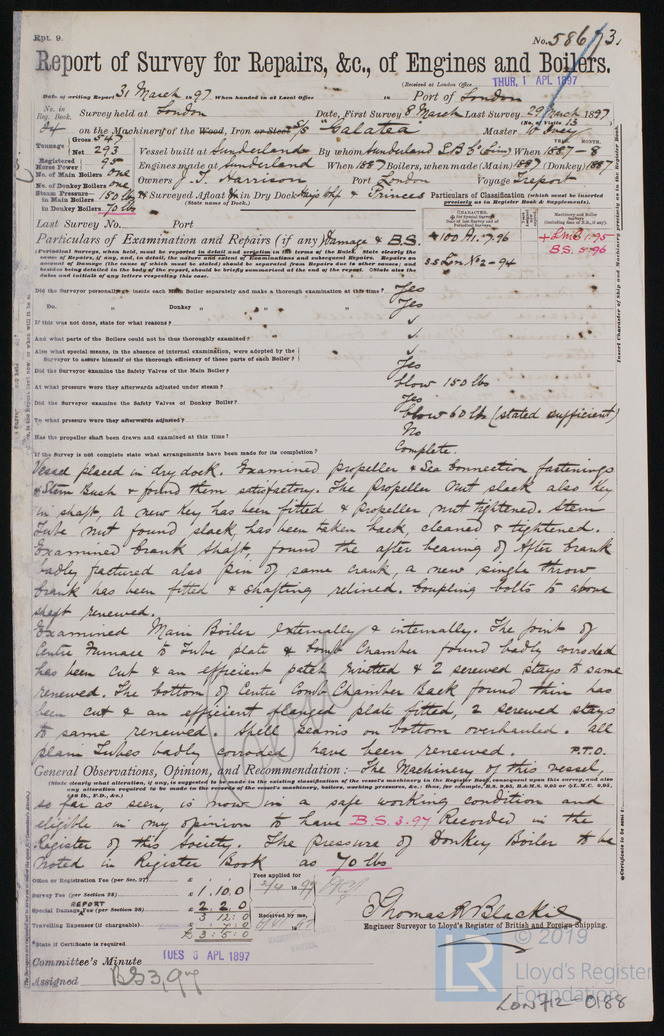 Rpt. 9.
No. 58673.
Report of Survey for Repairs, &c., of Engines and Boilers.
(Received at London Office THUR. 1 APL 1897
Date of writing Report 31 March 1897 When handed in at Local Office in Port of London
No. in Reg. Book. Survey held at London Date, First Survey 8 March Last Survey 29 March 1897
(No. of Visits 13)
24 on the Machinery of the Wood, Iron or Steel S/S "Galatea" Master W
Tonnage Gross 547
Net 293
Vessel built at Sunderland By whom Sunderland S.B. Co Lim When 1887-8
YEAR. MONTH.
Registered Horse Power 95
Engines made at Sunderland When 1887 Boilers, when made (Main) 1887 (Donkey) 1887
No. of Main Boilers One
No. of Donkey Boilers One
Owners J. T. Harrison Port London Voyage Treport
Steam Pressure in Main Boilers 150 lbs
in Donkey Boilers 70 lbs
If Surveyed Afloat or in Dry Dock & Princes
(State name of Dock.)
Particulars of Classification (which must be inserted precisely as in Register Book & Supplements).
Last Survey No. Port
Particulars of Examination and Repairs (if any) Damage & B.S.
CHARACTER.
Machinery and Boiler Surveys
+100 A1. 7.96
+LMC 1.95
B.S. 5.96
SS Lon No 2-94
Insert Character of Ship and Machinery precisely as in the Register Book.
Did the Surveyor personally go inside each Main Boiler separately and make a thorough examination at this time? Yes
Do. " Donkey " " " " " Yes
If this was not done, state for what reasons? ✓
And what parts of the Boilers could not be thus thoroughly examined? ✓
Also what special means, in the absence of internal examination, were adopted by the Surveyor to assure himself of the thorough efficiency of those parts of each Boiler? ✓
Did the Surveyor examine the Safety Valves of the Main Boiler? Yes
At what pressure were they afterwards adjusted under steam? blow 150 lbs
Did the Surveyor examine the Safety Valves of Donkey Boiler? Yes
To what pressure were they afterwards adjusted? blow 60 lbs (stated sufficient)
Has the propeller shaft been drawn and examined at this time? No
If the Survey is not complete state what arrangements have been made for its completion? Complete.
Vessel placed in dry dock. Examined propeller & Sea Connection fastenings
& Stern Bush & found them satisfactory. The propeller Nut slack also Key
in shaft, A new Key has been fitted & propeller nut tightened. Stern
Tube nut found slack, has been taken back, cleaned & tightened.
Examined Crank Shaft, found the after bearing of After Crank
badly factured also pin of same crank, a new single throw
Crank has been fitted & shafting relined. Coupling bolts to above
shaft renewed.
Examined Main Boiler externally & internally. The joint of
Centre Furnace to Tube plate & Comb Chamber found badly corroded
has been cut & an efficient patch rivetted & 2 screwed stays to same
renewed. The bottom of Centre Comb Chamber Back found thin has
been cut & an efficient flanged plate fitted, 2 screwed stays
to same renewed. Shell seams on bottom overhauled. All
plain Tubes badly corroded have been renewed. P.T.O.
General Observations, Opinion, and Recommendation:— The Machinery of this vessel,
(State clearly what alteration, if any, is suggested to be made in the existing classification of the vessel's machinery in the Register Book, consequent upon this survey, and also any alteration required to be made in the working pressure of the boilers, &c.; thus, for example, B.S. 9.95, B.&M.S. 9.95 or ✠L.M.C. 9.95, 140 lb., F.D., &c.)
so far as seen, is now in a safe working condition and
eligible in my opinion to have B.S. 3.97 Recorded in the
Register of this Society. The pressure of Donkey Boiler to be
noted in Register Book as 70 lbs
Office or Registration Fee (per Sec. 27) £ : :
Fees applied for
2/4 1897
Survey Fee (per Section 28) £ 1 : 10 : 0
REPORT
Special Damage Fee (per Section 28) £ 2 : 2 : 0
3 12 : 0
Received by me,
Travelling Expenses (if chargeable)
£ 3 : 5 : 0
Thomas R Blackie
Engineer Surveyor to Lloyd's Register of British and Foreign Shipping.
*State if Certificate is required
Committee's Minute TUES 6 APL 1897
Assigned BS 3,97
© 2019
Lloyd's Register
Foundation
LR
LON712-0188